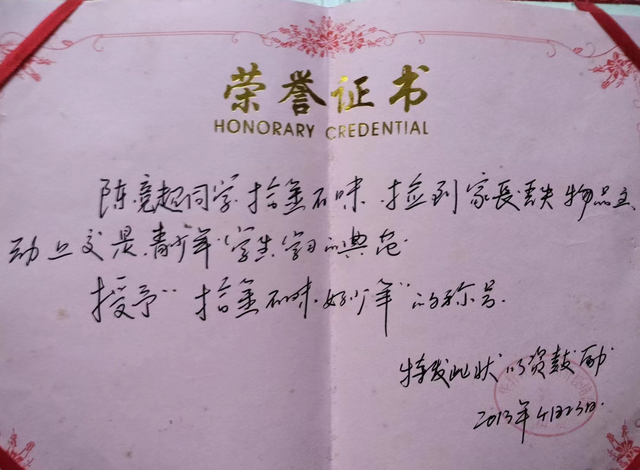 荣誉证书
HONORARY CREDENTIAL
陈亮超同学拾金不昧.捡到家长丢失物品主
动上交是青少年学生学习的典范
授予"拾金不昧好少年"的称号.
特发此状以资鼓励
2013年4月23日.